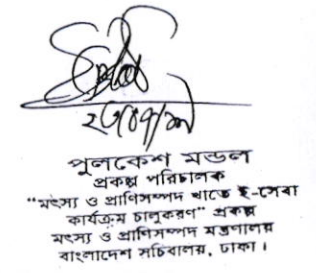 পুলকেশ মন্ডল
প্রকল্প পরিচালক
“মৎস্য ও প্রাণিসম্পদ খাতে ই-সেবা
কার্যক্রম চালুকরণ” প্রকল্প
মৎস্য ও প্রাণিসম্পদ মন্ত্রণালয়
বাংলাদেশ সচিবালয়, ঢাকা।